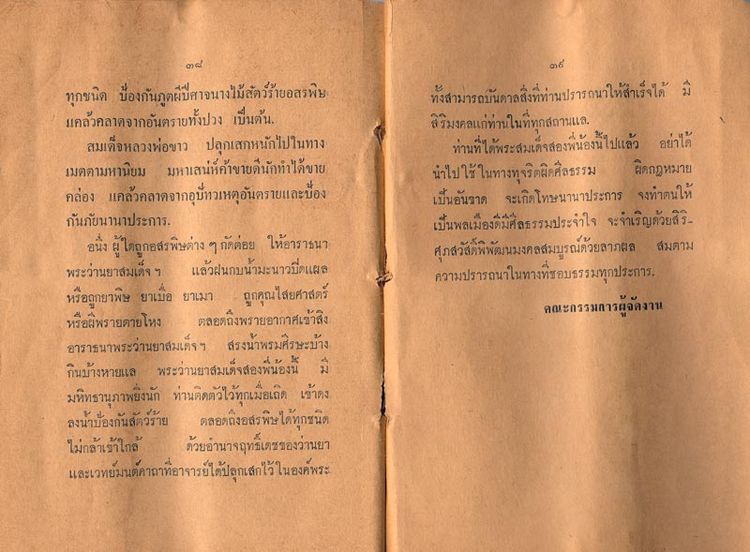 ๓๘
ทุกชนิด ป้องกันภูตผีปีศาจนางไม้สัตว์ร้ายอสรพิษ
แคล้วคลาดจากอันตรายทั้งปวง เป็นต้น.
สมเด็จหลวงพ่อขาว ปลุกเสกหนักไปในทาง
เมตตามหานิยม มหาเสน่ห์ค้าขายดีนักทำได้ขาย
คล่อง แคล้วคลาดจากอุบัทวเหตุอันตรายและป้อง
กันภัยนานาประการ.
อนึ่ง ผู้ใดถูกอสรพิษต่าง ๆ กัดต่อย ให้อาราธนา
พระว่านยาสมเด็จ ฯ แล้วฝนกับน้ำมะนาวปิดแผล
หรือถูกยาพิษ ยาเบื่อ ยาเมา ถูกคุณไสยศาสตร์
หรือผีพรายตายโหง ตลอดถึงพรายอากาศเข้าสิง
อาราธนาพระว่านยาสมเด็จ ฯ สรงน้ำพรมศีรษะบ้าง
กินบ้างหายแล พระว่านยาสมเด็จสองพี่น้องนี้ มี
มหิทธานุภาพยิ่งนัก ท่านติดตัวไว้ทุกเมื่อเถิด เข้าดง
ลงน้ำป้องกันสัตว์ร้าย ตลอดถึงอสรพิษได้ทุกชนิด
ไม่กล้าเข้าใกล้ ด้วยอำนาจฤทธิ์เดชของว่านยา
และเวทย์มนต์คาถาที่อาจารย์ได้ปลุกเสกไว้ในองค์พระ
๓๙
ทั้งสามารถบันดาลสิ่งที่ท่านปรารถนาให้สำเร็จได้ มี
สิริมงคลแก่ท่านในที่ทุกสถานแล.
ท่านที่ได้พระสมเด็จสองพี่น้องนี้ไปแล้ว อย่าได้
นำไปใช้ในทางทุจริตผิดศีลธรรม ผิดกฎหมาย
เป็นอันขาด จะเกิดโทษนานาประการ จงทำตนให้
เป็นพลเมืองดีมีศีลธรรมประจำใจ จะจำเริญด้วยสิริ-
ศุภสวัสดิ์พิพัฒนมงคลสมบูรณ์ด้วยลาภผล สมตาม
ความปรารถนาในทางที่ชอบธรรมทุกประการ.
คณะกรรมการผู้จัดงาน